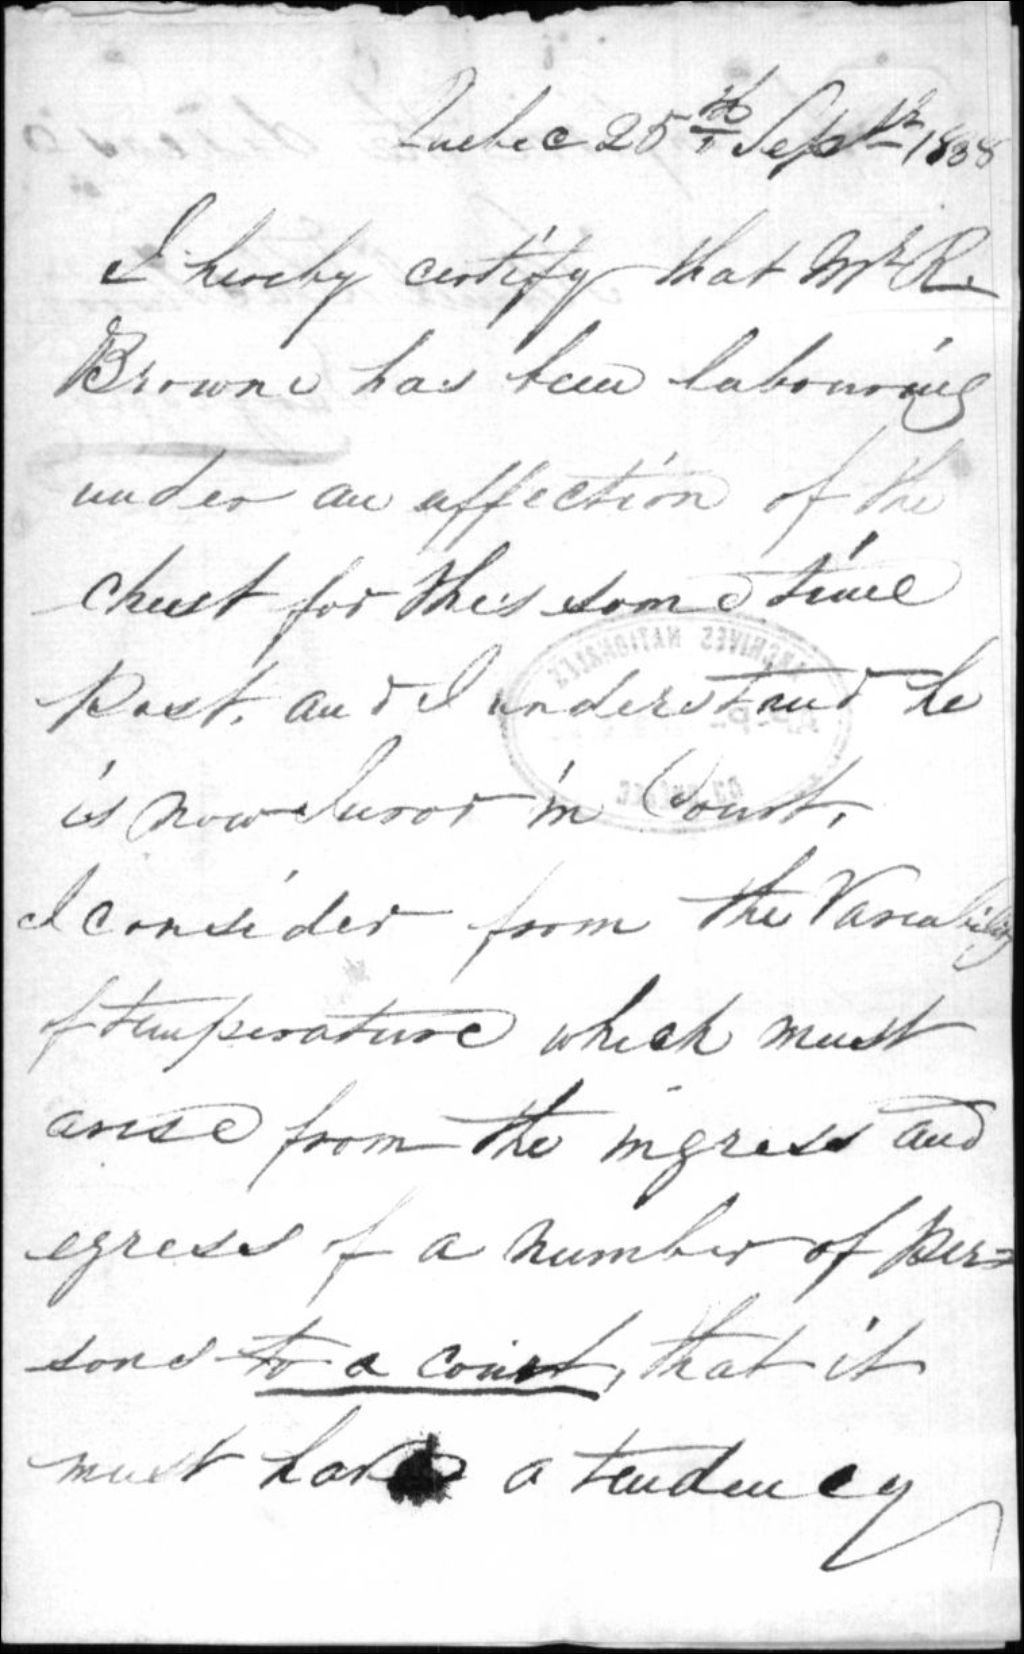 Quebec 25th Septr 1838
I hereby certify that Mr R.
Browne has been labouring
under an affection of the
chest for this some time
past, and I understand he
is now Juror in Court,
I consider from the Variability
of temperature which must
arise from the ingress and
egress of a number of per=
sons to a court, that it
must have a tendency
ARCHIVES NATIONALES
QUEBEC